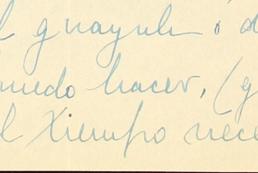 l guayule ó d
uedo hacer, (q
l Tiempo nece